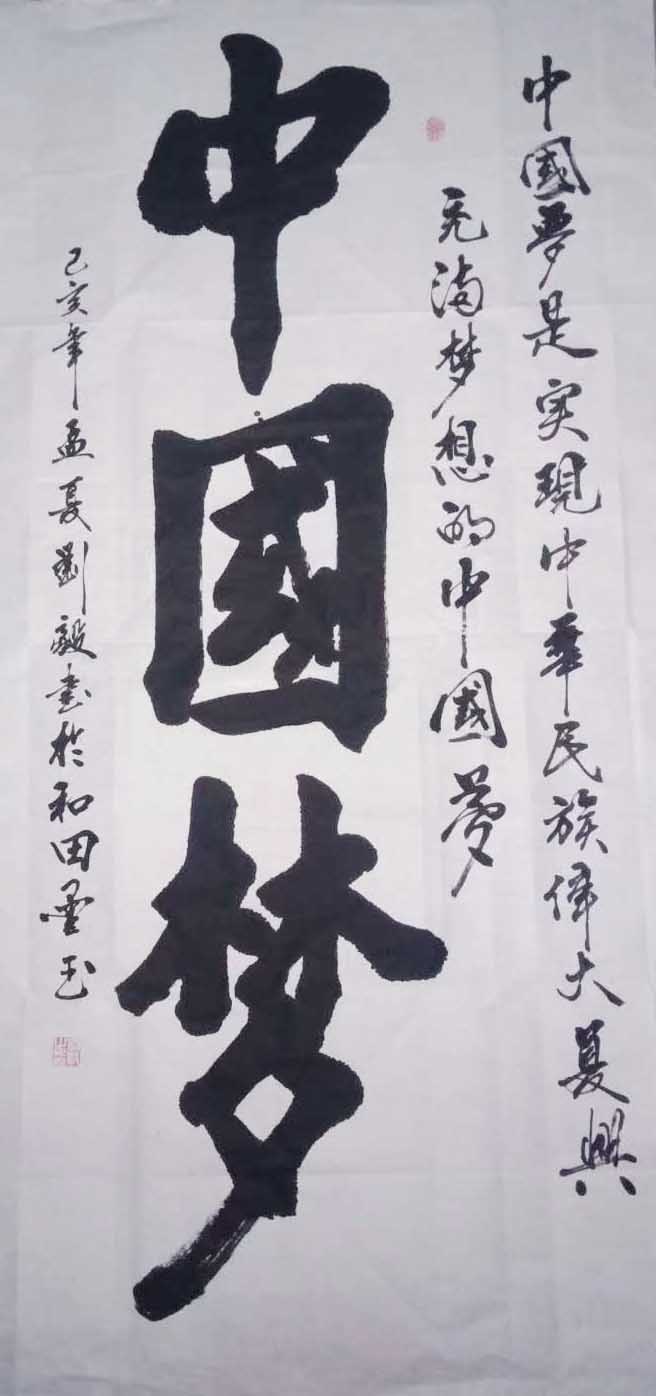 中國夢是实現中華民族偉大复興
充滿梦想的中國夢
中國梦
己亥年孟夏劉毅書於和田墨玉